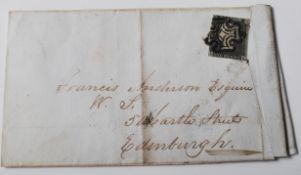 Francis Anderson Esquire
W. S.
5 Castle Street
Edinburgh.